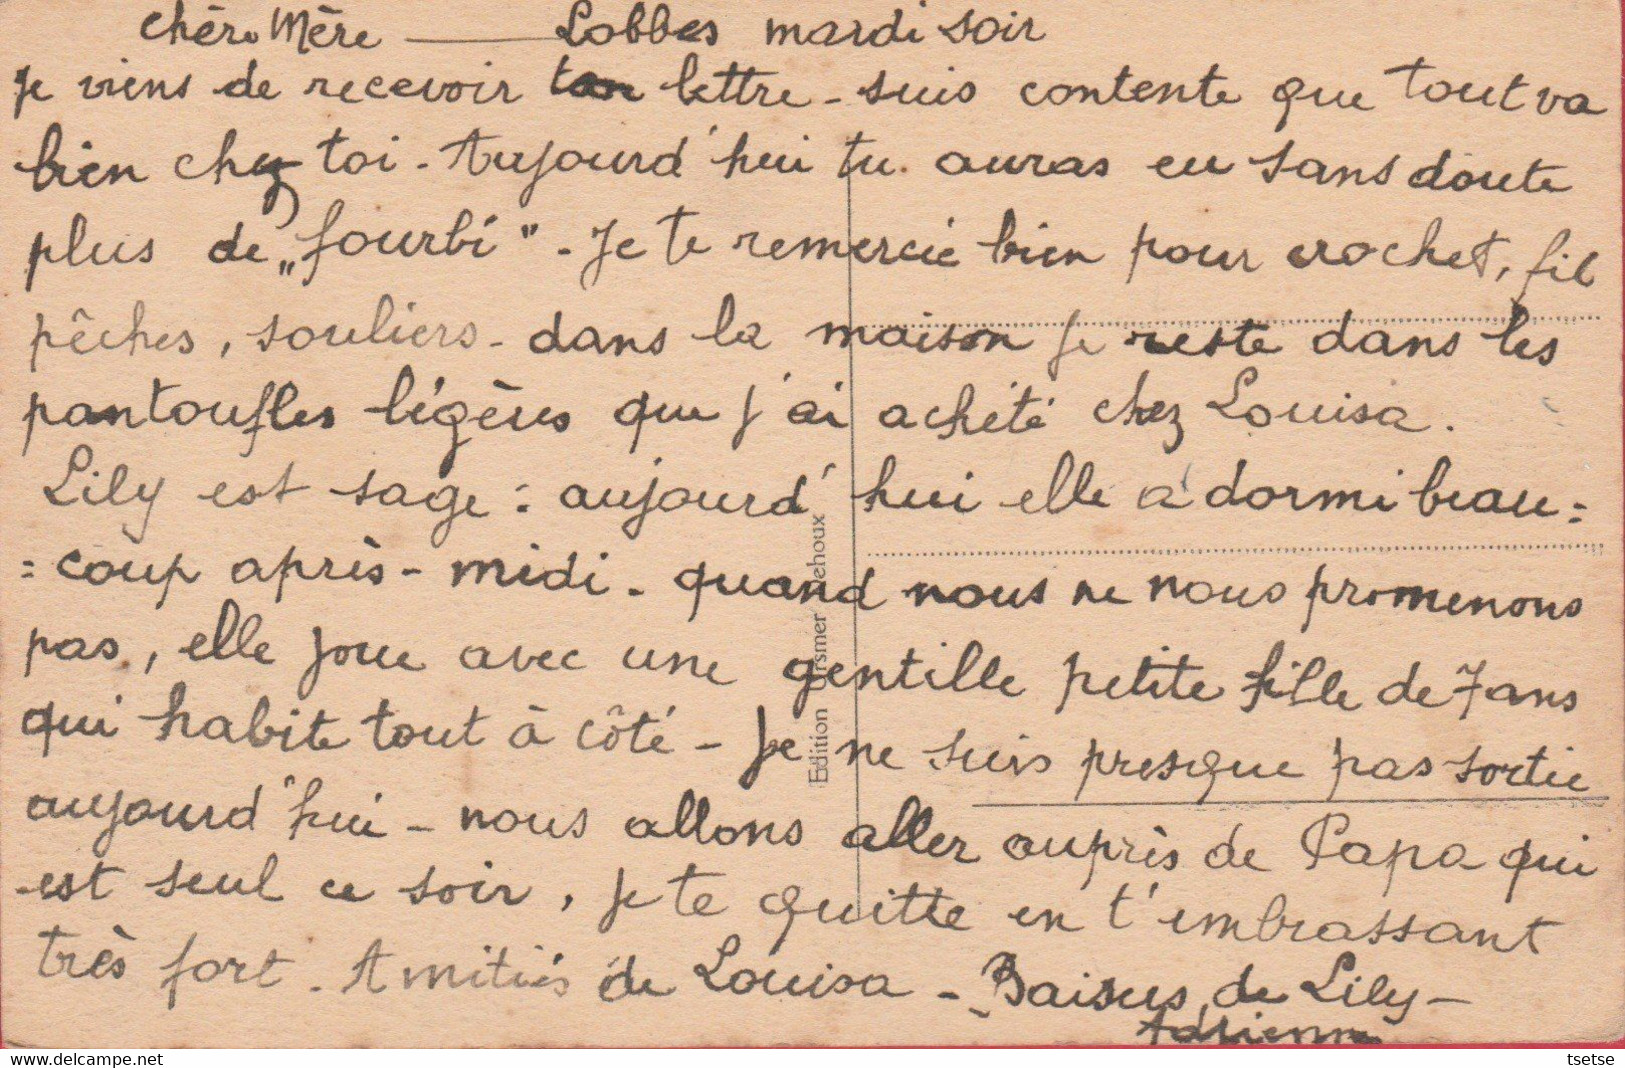 Chère Mère — Lobbes mardi soir
Je viens de recevoir ton lettre - suis contente que tout va
bien chez toi - Aujourd'hui tu auras eu sans doute
plus de „fourbi" - Je te remercie bien pour crochet, fil
pêches, souliers - dans la maison je reste dans les
pantoufles légères que j'ai acheté chez Louisa.
Lily est sage : aujourd'hui elle a dormi beau=
=coup après-midi - quand nous ne nous promenons
pas, elle joue avec une gentille petite fille de 7 ans
qui habite tout à côté - Je ne suis presque pas sortie
aujourd'hui - nous allons aller auprès de Papa qui
est seul ce soir, je te quitte en t'embrassant
très fort - Amitiés de Louisa - Baisers de Lily -
Adrienne
Edition Ursmer Dehoux
delcampe.net
tsetse